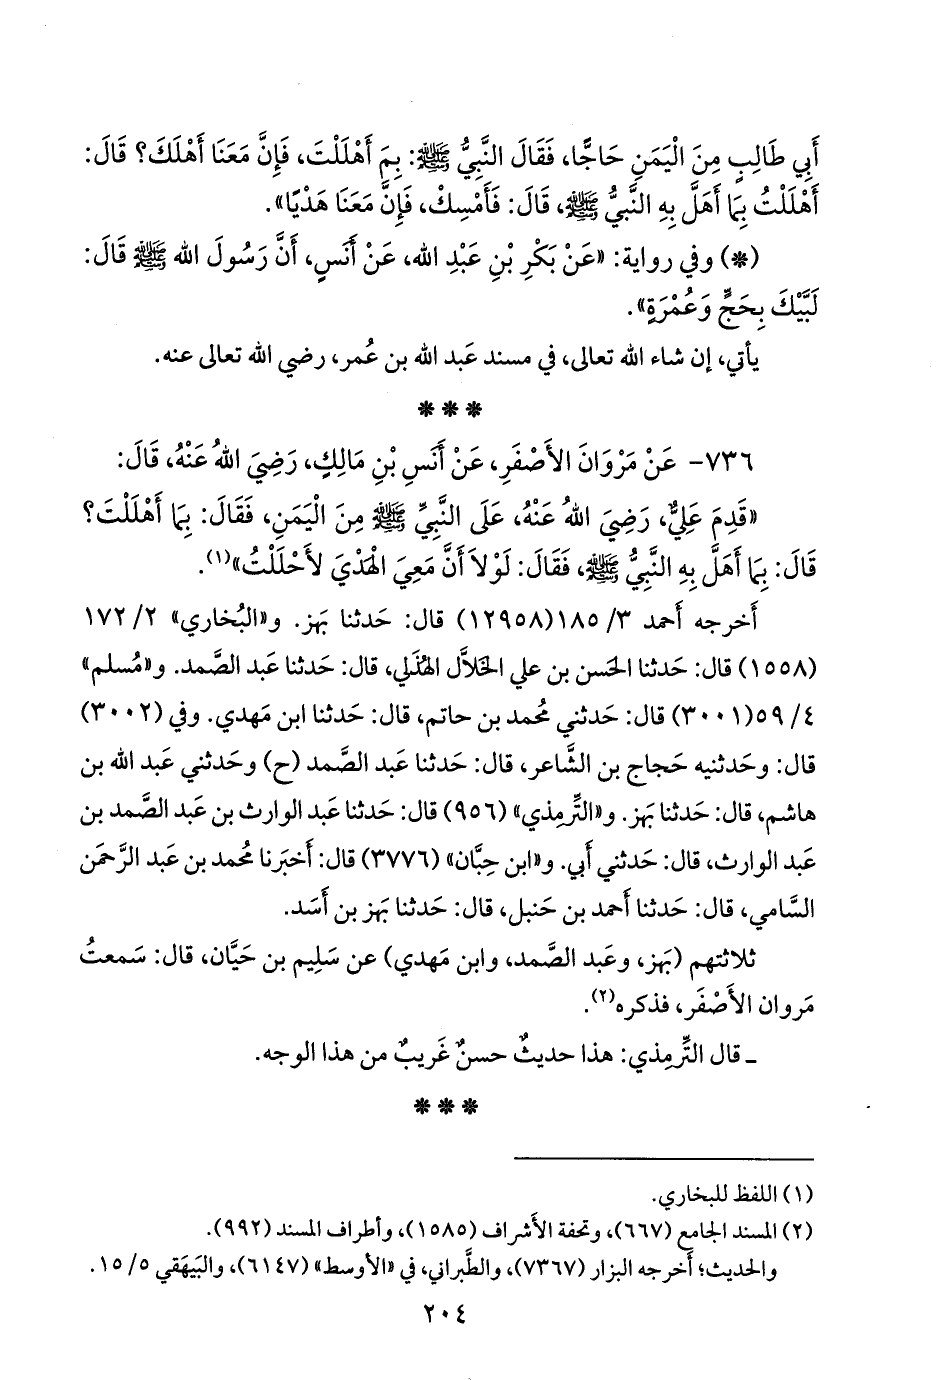 أَبِي طَالِبٍ مِنَ الْيَمَنِ حَاجًّا، فَقَالَ النَّبِيُّ ﷺ: بِمَ أَهْلَلْتَ، فَإِنَّ مَعَنَا أَهْلَكَ؟ قَالَ:
أَهْلَلْتُ بِمَا أَهَلَّ بِهِ النَّبِيُّ ﷺ، قَالَ: فَأَمْسِكْ، فَإِنَّ مَعَنَا هَدْيًا».
(*) وفي رواية: «عَنْ بَكْرِ بْنِ عَبْدِ الله، عَنْ أَنَسٍ، أَنَّ رَسُولَ الله ﷺ قَالَ:
لَبَّيْكَ بِحَجٍّ وَعُمْرَةٍ».
يأتي، إن شاء الله تعالى، في مسند عَبد الله بن عُمر، رضي الله تعالى عنه.
***
٧٣٦- عَنْ مَرْوَانَ الأَصْفَرِ، عَنْ أَنَسِ بْنِ مَالِكٍ، رَضِيَ اللهُ عَنْهُ، قَالَ:
«قَدِمَ عَلِيٌّ، رَضِيَ اللهُ عَنْهُ، عَلَى النَّبِيِّ ﷺ مِنَ الْيَمَنِ، فَقَالَ: بِمَا أَهْلَلْتَ؟
قَالَ: بِمَا أَهَلَّ بِهِ النَّبِيُّ ﷺ، فَقَالَ: لَوْلاَ أَنَّ مَعِيَ الْهَدْيَ لأَحْلَلْتُ»(١).
أخرجه أحمد ٣/ ١٨٥(١٢٩٥٨) قال: حَدثنا بَهز. و«البُخاري» ٢/ ١٧٢
(١٥٥٨) قال: حَدثنا الحَسن بن علي الخَلَّال الهُذَلي، قال: حَدثنا عَبد الصَّمد. و«مُسلم»
٤/ ٥٩(٣٠٠١) قال: حَدثني مُحمد بن حاتم، قال: حَدثنا ابن مَهدي. وفي (٣٠٠٢)
قال: وحَدثنيه حَجاج بن الشَّاعر، قال: حَدثنا عَبد الصَّمد (ح) وحَدثني عَبد الله بن
هاشم، قال: حَدثنا بَهز. و«التِّرمِذي» (٩٥٦) قال: حَدثنا عَبد الوارث بن عَبد الصَّمد بن
عَبد الوارث، قال: حَدثني أَبي. و«ابن حِبَّان» (٣٧٧٦) قال: أَخبَرنا مُحمد بن عَبد الرَّحمَن
السَّامي، قال: حَدثنا أَحمد بن حَنبل، قال: حَدثنا بَهز بن أَسَد.
ثلاثتهم (بَهز، وعَبد الصَّمد، وابن مَهدي) عن سَلِيم بن حَيَّان، قال: سَمعتُ
مَروان الأَصْفَر، فذكره(٢).
ـ قال التِّرمِذي: هذا حديثٌ حسنٌ غَريبٌ من هذا الوجه.
***
(١) اللفظ للبخاري.
(٢) المسند الجامع (٦٦٧)، وتحفة الأشراف (١٥٨٥)، وأطراف المسند (٩٩٢).
والحديث؛ أَخرجه البزار (٧٣٦٧)، والطَّبراني، في «الأوسط» (٦١٤٧)، والبَيهَقي ٥/ ١٥.
٢٠٤